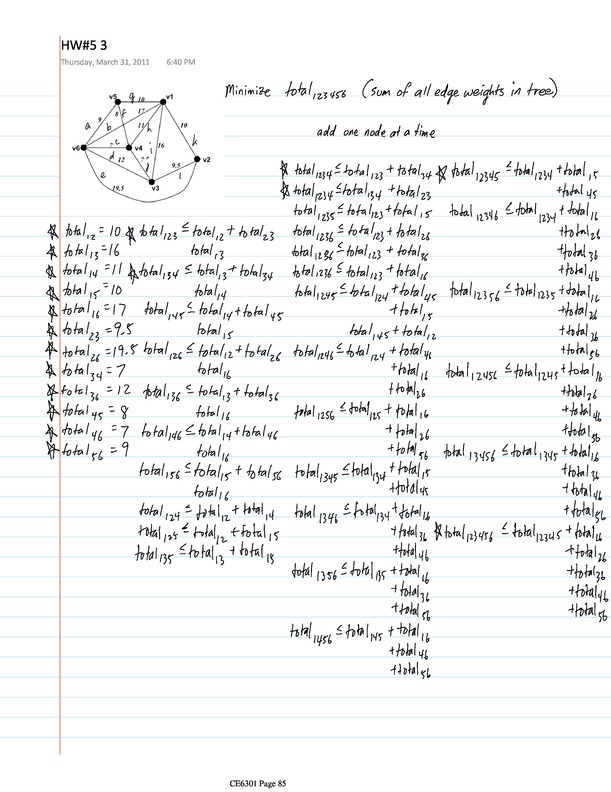 HW#5 3
Thursday, March 31, 2011 6:40 PM
Minimize total₁₂₃₄₅₆ (sum of all edge weights in tree)
add one node at a time
v5 g 10 v1
9 8 f 17 10
a b h 11 k
v6 7 c v4 i 16 v2
d 12 7 j 9.5 l
e v3
19.5
☆ total₁₂ = 10
☆ total₁₃ = 16
☆ total₁₄ = 11
☆ total₁₅ = 10
☆ total₁₆ = 17
☆ total₂₃ = 9.5
☆ total₂₆ = 19.5
☆ total₃₄ = 7
☆ total₃₆ = 12
☆ total₄₅ = 8
☆ total₄₆ = 7
☆ total₅₆ = 9
☆ total₁₂₃ ≤ total₁₂ + total₂₃
total₁₃
☆ total₁₃₄ ≤ total₁₃ + total₃₄
total₁₄
total₁₄₅ ≤ total₁₄ + total₄₅
total₁₅
total₁₂₆ ≤ total₁₂ + total₂₆
total₁₆
total₁₃₆ ≤ total₁₃ + total₃₆
total₁₆
total₁₄₆ ≤ total₁₄ + total₄₆
total₁₆
total₁₅₆ ≤ total₁₅ + total₅₆
total₁₆
total₁₂₄ ≤ total₁₂ + total₁₄
total₁₂₅ ≤ total₁₂ + total₁₅
total₁₃₅ ≤ total₁₃ + total₁₅
☆ total₁₂₃₄ ≤ total₁₂₃ + total₃₄
☆ total₁₂₃₄ ≤ total₁₃₄ + total₂₃
total₁₂₃₅ ≤ total₁₂₃ + total₁₅
total₁₂₃₆ ≤ total₁₂₃ + total₂₆
total₁₂₃₆ ≤ total₁₂₃ + total₃₆
total₁₂₃₆ ≤ total₁₂₃ + total₁₆
total₁₂₄₅ ≤ total₁₂₄ + total₄₅
+total₁₅
total₁₄₅ + total₁₂
total₁₂₄₆ ≤ total₁₂₄ + total₄₆
+total₁₆
+total₂₆
total₁₂₅₆ ≤ total₁₂₅ + total₁₆
+total₂₆
+total₅₆
total₁₃₄₅ ≤ total₁₃₄ + total₁₅
+total₄₅
total₁₃₄₆ ≤ total₁₃₄ + total₁₆
+total₃₆
+total₄₆
total₁₃₅₆ ≤ total₁₃₅ + total₁₆
+total₃₆
+total₅₆
total₁₄₅₆ ≤ total₁₄₅ + total₁₆
+total₄₆
+total₅₆
☆ total₁₂₃₄₅ ≤ total₁₂₃₄ + total₁₅
+total₄₅
total₁₂₃₄₆ ≤ total₁₂₃₄ + total₁₆
+total₂₆
+total₃₆
+total₄₆
total₁₂₃₅₆ ≤ total₁₂₃₅ + total₁₆
+total₂₆
+total₃₆
+total₅₆
total₁₂₄₅₆ ≤ total₁₂₄₅ + total₁₆
+total₂₆
+total₄₆
+total₅₆
total₁₃₄₅₆ ≤ total₁₃₄₅ + total₁₆
+total₃₆
+total₄₆
+total₅₆
☆ total₁₂₃₄₅₆ ≤ total₁₂₃₄₅ + total₁₆
+total₂₆
+total₃₆
+total₄₆
+total₅₆
CE6301 Page 85